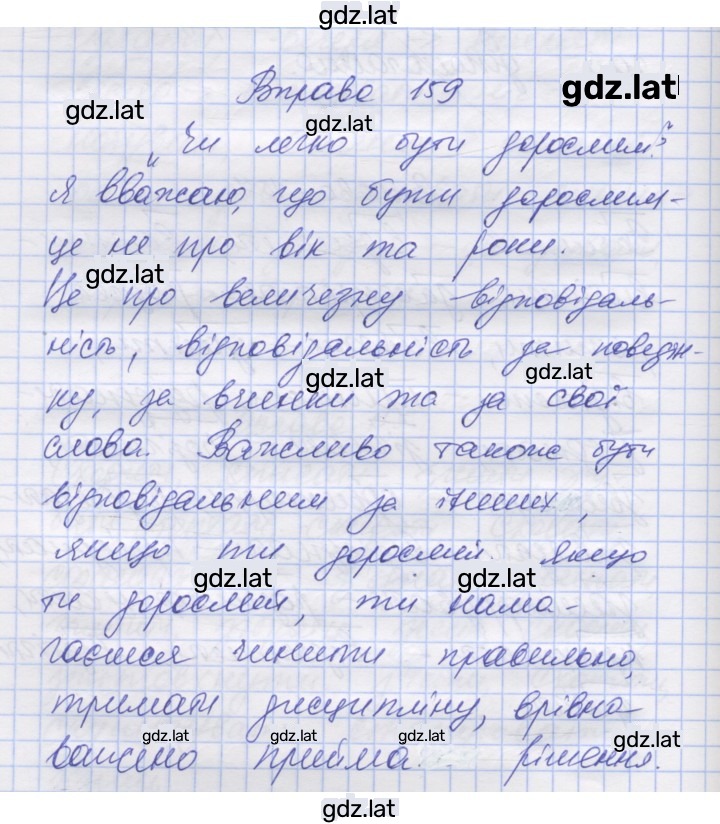 gdz.lat
Вправа 159
gdz.lat
gdz.lat
gdz.lat
„Чи легко бути дорослим?"
Я вважаю, що бути дорослим-
це не про вік та роки.
gdz.lat
Це про величезну відповідаль-
ність, відповідальність за поведін-
gdz.lat
gdz.lat
ку, за вчинки та за свої
слова. Важливо також бути
відповідальним за інших,
якщо ти дорослий. Якщо
gdz.lat
gdz.lat
ти дорослий, ти нама-
гаєшся чинити правильно,
тримати дисципліну, врівно
gdz.lat
gdz.lat
gdz.lat
gdz.lat
важено прийма рішення.
gdz.lat